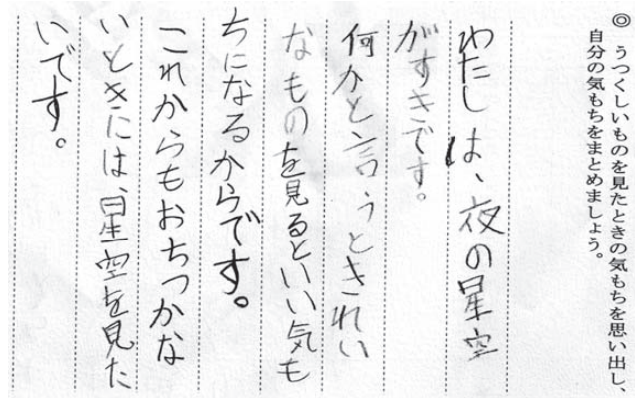 ◎ うつくしいものを見たときの気もちを思い出し、
自分の気もちをまとめましょう。
わたしは、夜の星空
がすきです。
何かと言うときれい
なものを見るといい気も
ちになるからです。
これからもおちつかな
いときには、星空を見た
いです。